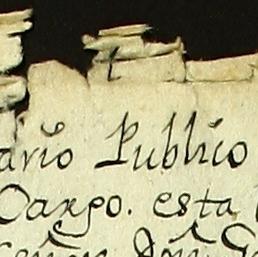 ario Publico
Cargo. esta
señor Don